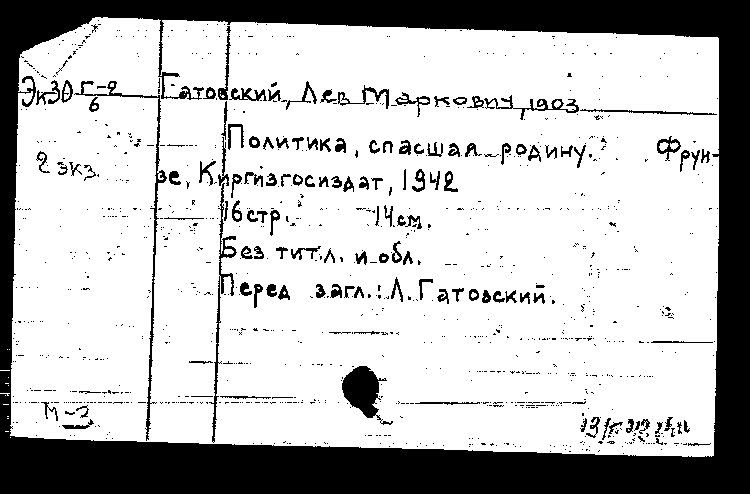 Эк30 Г-2 Гатовский, Лев Маркович, 1903
6
Политика, спасшая родину. Фрун-
2 экз.
зе, Киргизгосиздат, 1942
16 стр. 14 см.
Без тит.л. и обл.
Перед загл.: Л. Гатовский.
М-3